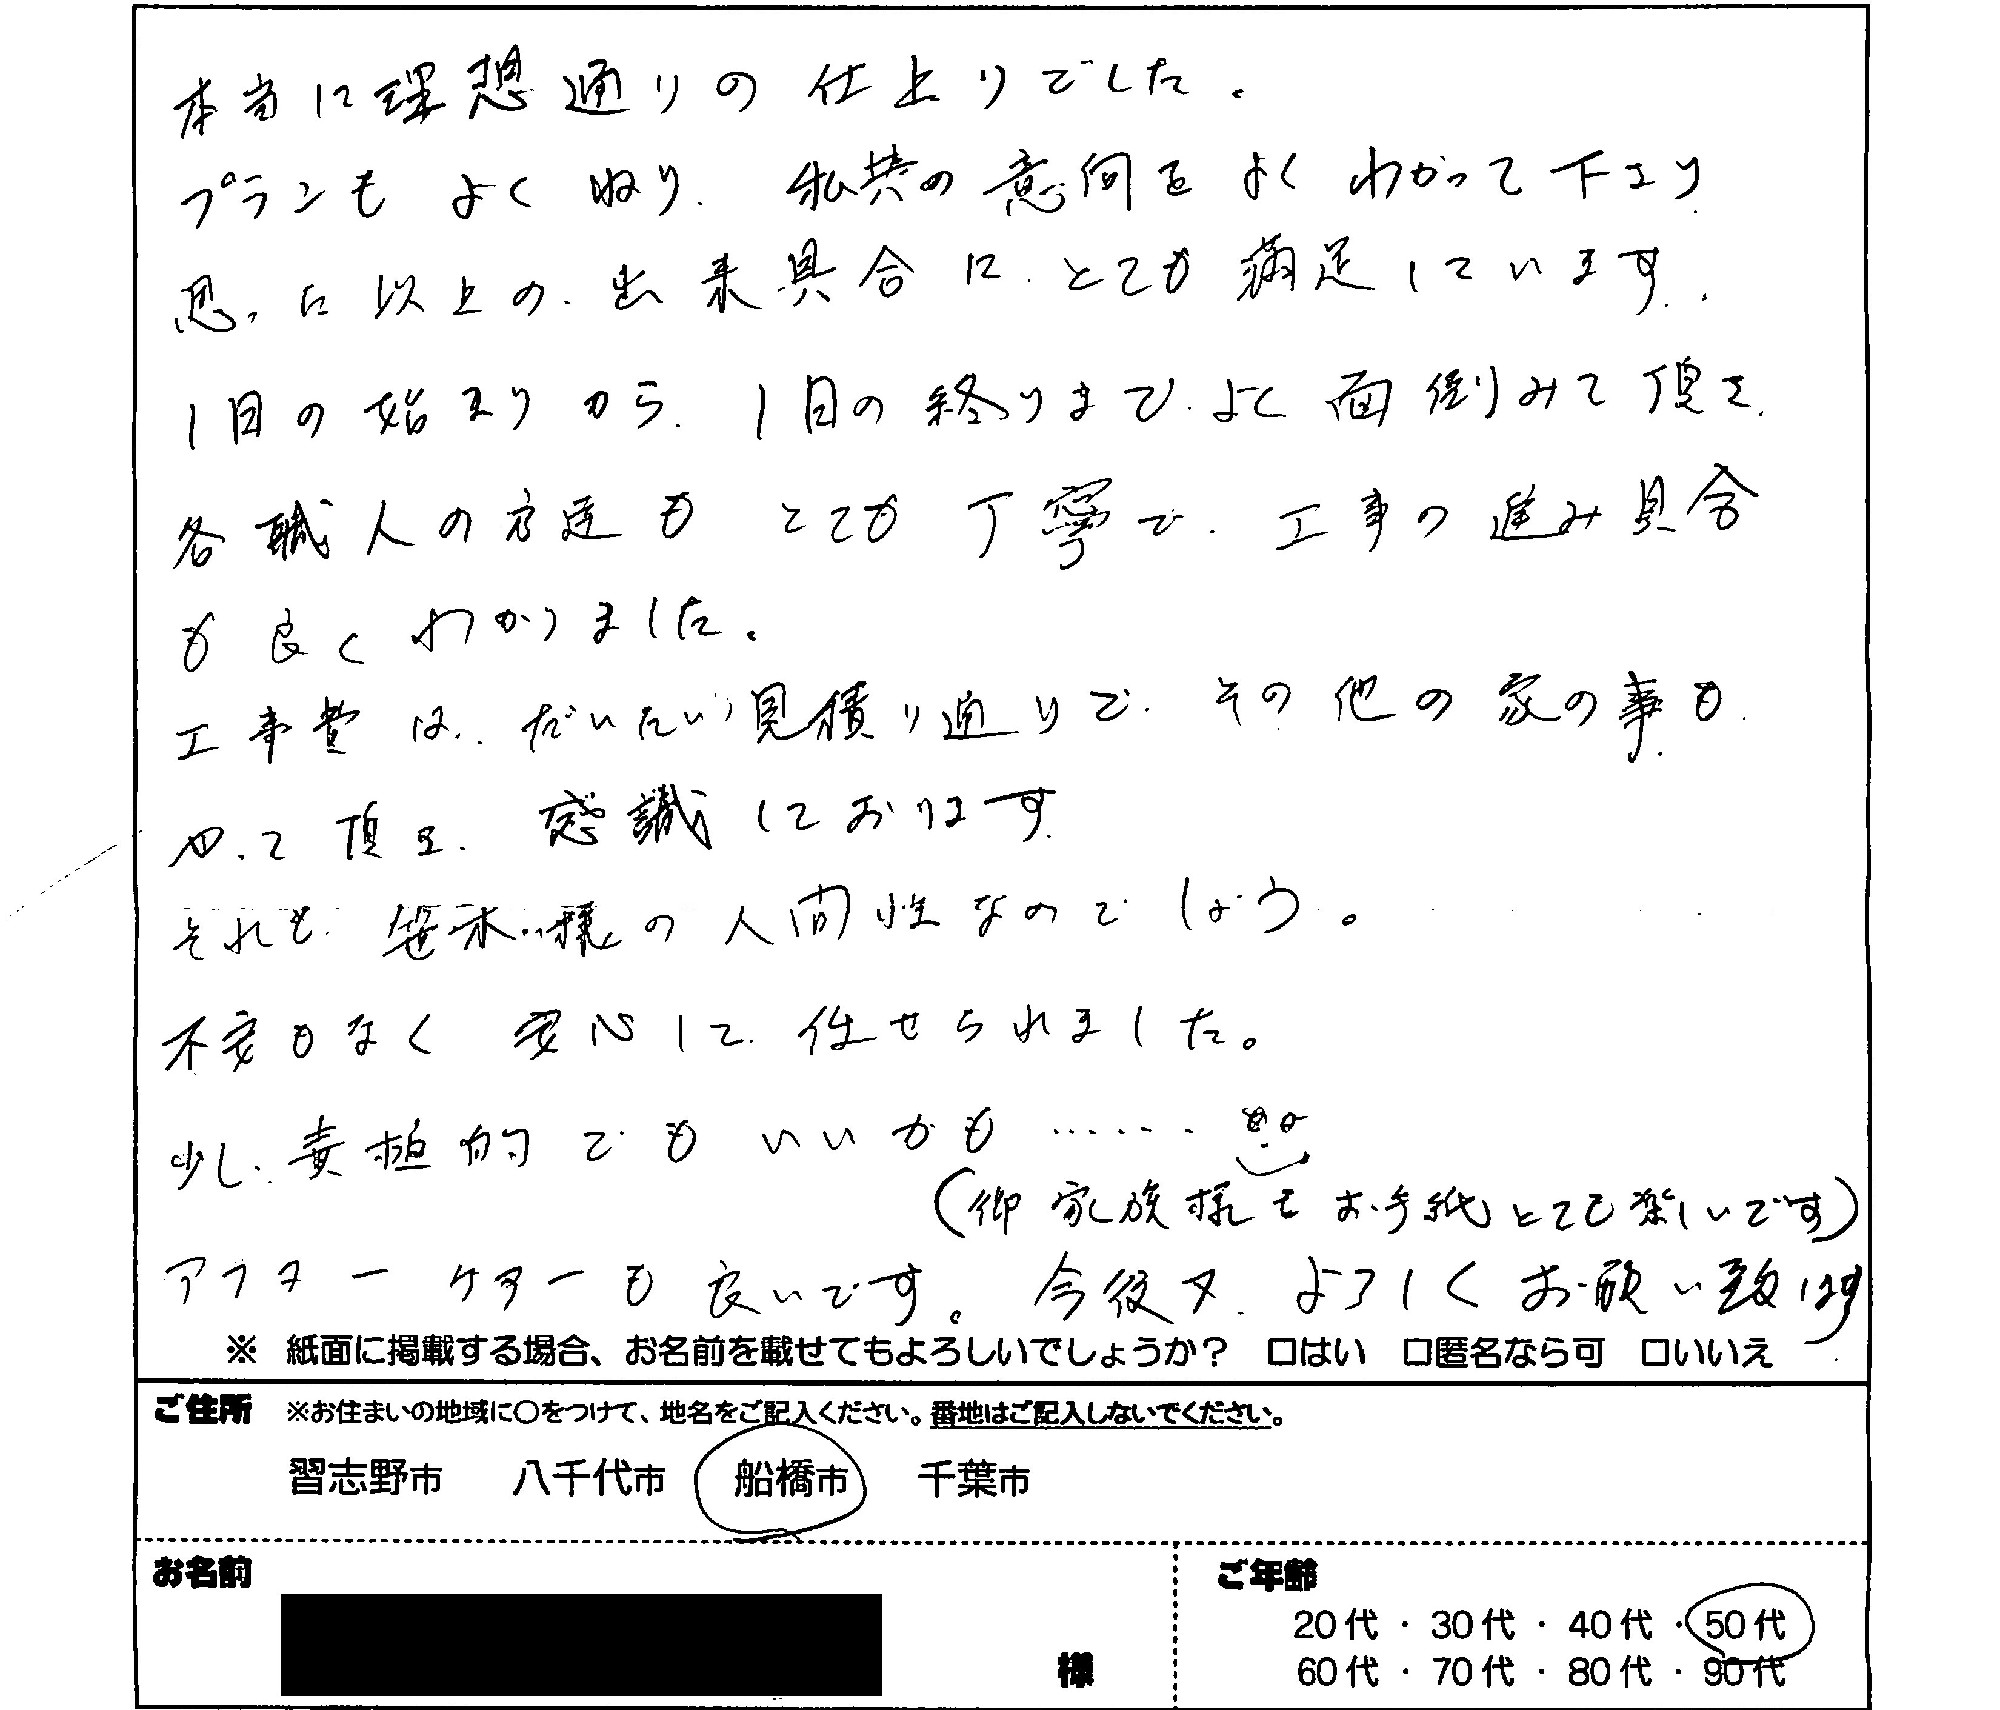 本当に理想通りの仕上りでした。
プランもよくねり、私共の意向をよくわかって下さり
思った以上の、出来具合に、とても満足しています。
1日の始まりから、1日の終りまで、よく面倒みて頂き、
各職人の方達もとても丁寧で、工事の進み具合
も良くわかりました。
工事費は、だいたい見積り通りで、その他の家の事も
やって頂き、感識しております
それも、笹木様の人間性なのでしょう。
不安もなく安心して、任せられました。
少し、責極的でもいいかも……
(御家族様もお手紙とても楽しいです)
アフターケアーも良いです。今後又、よろしくお願い致します
※ 紙面に掲載する場合、お名前を載せてもよろしいでしょうか? □はい □匿名なら可 □いいえ
ご住所 ※お住まいの地域に〇をつけて、地名をご記入ください。番地はご記入しないでください。
習志野市 八千代市 船橋市 千葉市
お名前 様
ご年齢
20代・30代・40代・50代
60代・70代・80代・90代